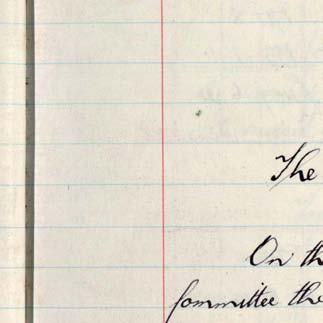 The
On th
Committee the